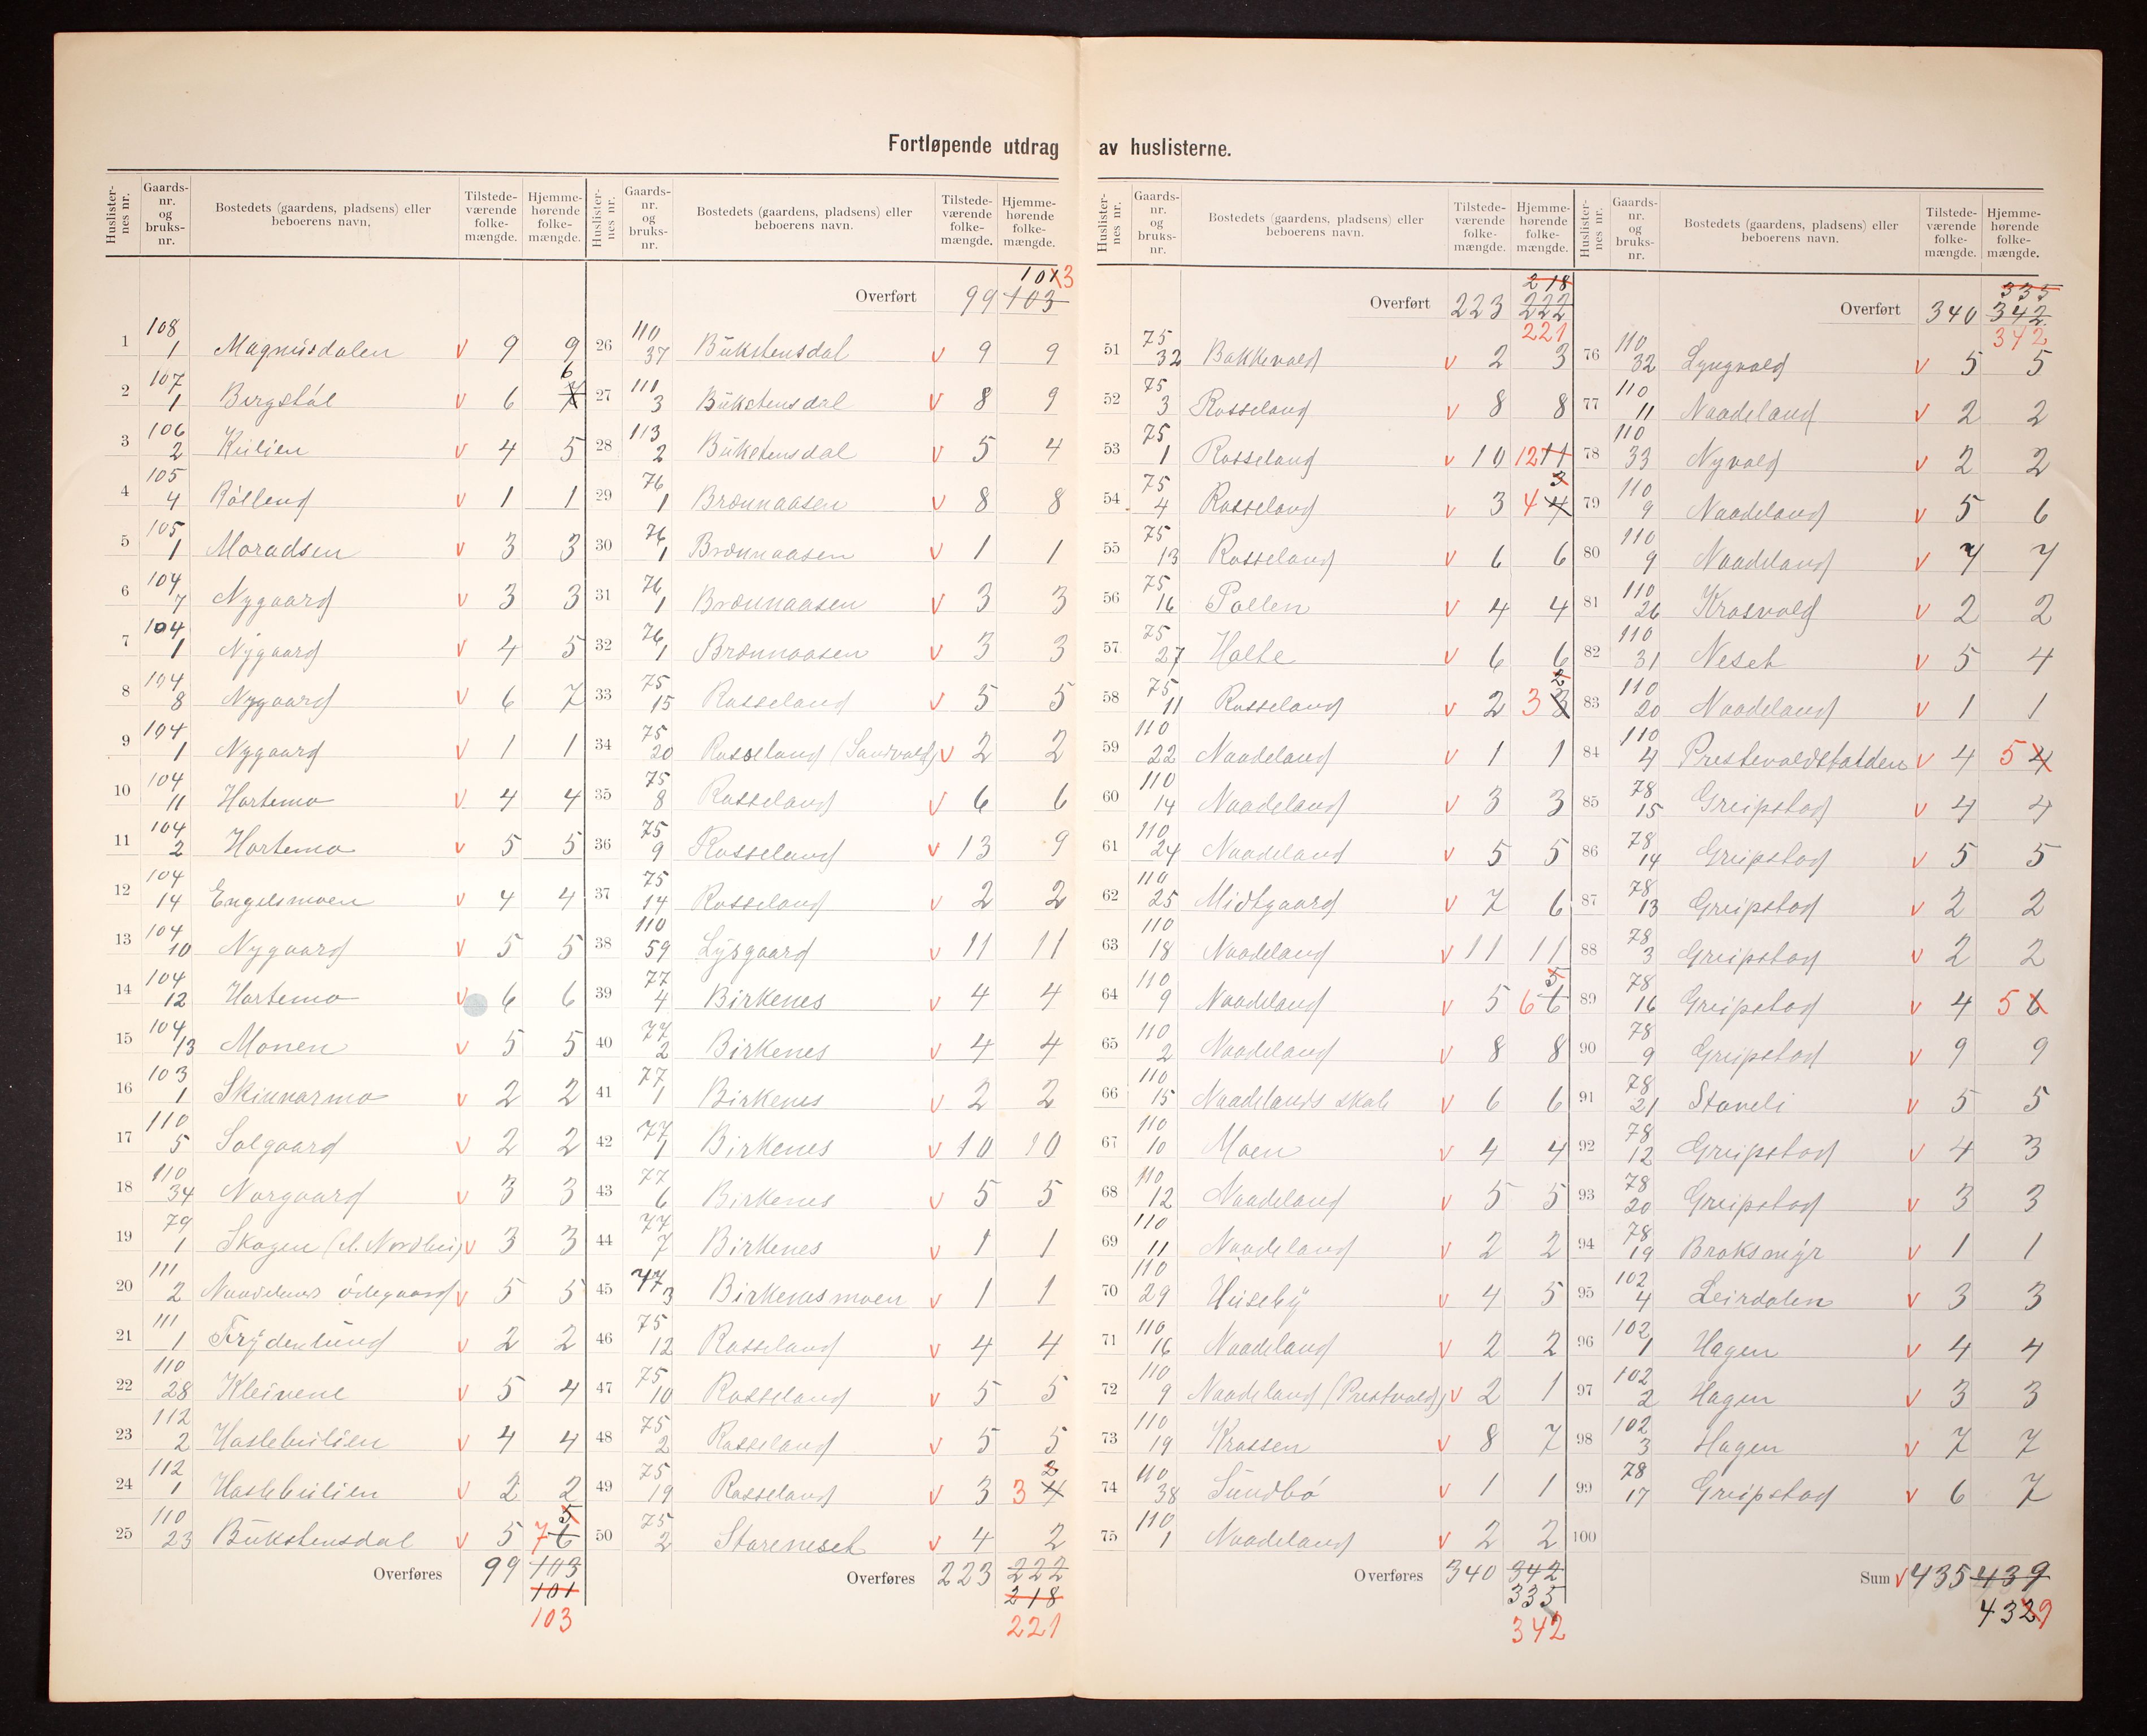 Fortløpende utdrag av huslisterne.
Huslister-nes nr. Gaards-nr. og bruks-nr. Bostedets (gaardens, pladsens) eller beboerens navn. Tilstede-værende folke-mængde. Hjemme-hørende folke-mængde.
1 108/1 Magnusdalen v 9 9
2 107/1 Bergstøl v 6 7 6
3 106/2 Kulien v 4 5
4 105/4 v 1 1
5 105/1 v 3 3
6 104/7 Nygaard v 3 3
7 104/1 Nygaard v 4 5
8 104/8 Nygaard v 6 7
9 104/1 Nygaard v 1 1
10 104/11 Hortemo v 4 4
11 104/2 Hortemo v 5 5
12 104/14 Engelsmoen v 4 4
13 104/10 Nygaard v 5 5
14 104/12 Hortemo v 6 6
15 104/13 Monen v 5 5
16 103/1 Skinnarmo v 2 2
17 110/5 Solgaard v 2 2
18 110/34 Norgaard v 3 3
19 79/1 Skogen v 3 3
20 111/2 Naadelands ødegaard v 5 5
21 111/1 Frydenlund v 2 2
22 110/28 Kleivene v 5 4
23 112/2 Haslebulien v 4 4
24 112/1 Haslebulien v 2 2
25 110/23 Bukstensdal v 5 7 6 5
Overføres 99 103
101
103
Huslister-nes nr. Gaards-nr. og bruks-nr. Bostedets (gaardens, pladsens) eller beboerens navn. Tilstede-værende folke-mængde. Hjemme-hørende folke-mængde.
1013
Overført 99 103
26 110/37 Bukstensdal v 9 9
27 111/3 Bukstensdal v 8 9
28 113/2 Bukstensdal v 5 4
29 76/1 Brønnaasen v 8 8
30 76/1 Brønnaasen v 1 1
31 76/1 Brønnaasen v 3 3
32 76/1 Brønnaasen v 3 3
33 75/15 Rosseland v 5 5
34 75/20 Rosseland (Sandvold) v 2 2
35 75/8 Rosseland v 6 6
36 75/9 Rosseland v 13 9
37 75/14 Rosseland v 2 2
38 110/59 Lysgaard v 11 11
39 77/4 Birkenes v 4 4
40 77/2 Birkenes v 4 4
41 77/1 Birkenes v 2 2
42 77/1 Birkenes v 10 10
43 77/6 Birkenes v 5 5
44 77/7 Birkenes v 1 1
45 77/3 Birkenesmoen v 1 1
46 75/12 Rosseland v 4 4
47 75/10 Rosseland v 5 5
48 75/2 Rosseland v 5 5
49 75/19 Rosseland v 3 3 4 2
50 75/2 Storeneset v 4 2
Overføres 223 222
218
221
Huslister-nes nr. Gaards-nr. og bruks-nr. Bostedets (gaardens, pladsens) eller beboerens navn. Tilstede-værende folke-mængde. Hjemme-hørende folke-mængde.
218
Overført 223 222
221
51 75/32 Bakkevold v 2 3
52 75/3 Rosseland v 8 8
53 75/1 Rosseland v 10 12 11
54 75/4 Rosseland v 3 4 4 3
55 75/13 Rosseland v 6 6
56 75/16 Pollen v 4 4
57 75/27 Holte v 6 6
58 75/11 Rosseland v 2 3 3 2
59 110/22 Naadeland v 1 1
60 110/14 Naadeland v 3 3
61 110/24 Naadeland v 5 5
62 110/25 Midtgaard v 7 6
63 110/18 Naadeland v 11 11
64 110/9 Naadeland v 5 6 6 5
65 110/2 Naadeland v 8 8
66 110/15 Naadelands skole v 6 6
67 110/10 Moen v 4 4
68 110/12 Naadeland v 5 5
69 110/11 Naadeland v 2 2
70 110/29 Huseby v 4 5
71 110/16 Naadeland v 2 2
72 110/9 Naadeland (Prestvold) v 2 1
73 110/19 Krossen v 8 7
74 110/38 Sundbø v 1 1
75 110/1 Naadeland v 2 2
Overføres 340 342
335
342
Huslister-nes nr. Gaards-nr. og bruks-nr. Bostedets (gaardens, pladsens) eller beboerens navn. Tilstede-værende folke-mængde. Hjemme-hørende folke-mængde.
335
Overført 340 342
342
76 110/32 Lyngvold v 5 5
77 110/11 Naadeland v 2 2
78 110/33 Nyvold v 2 2
79 110/9 Naadeland v 5 6
80 110/9 Naadeland v 7 7
81 110/26 Krosvold v 2 2
82 110/31 Neset v 5 4
83 110/20 Naadeland v 1 1
84 110/4 v 4 5 4
85 78/15 Greipstad v 4 4
86 78/14 Greipstad v 5 5
87 78/13 Greipstad v 2 2
88 78/3 Greipstad v 2 2
89 78/16 Greipstad v 4 5 6
90 78/9 Greipstad v 9 9
91 78/21 Stoveli v 5 5
92 78/12 Greipstad v 4 3
93 78/20 Greipstad v 3 3
94 78/19 Broksmyr v 1 1
95 102/4 Leirdalen v 3 3
96 102/1 Hagen v 4 4
97 102/2 Hagen v 3 3
98 102/3 Hagen v 7 7
99 78/17 Greipstad v 6 7
100
Sum v 435 439
4329